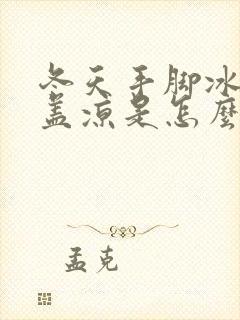 冬天手脚冰
盖凉是怎麼
孟克